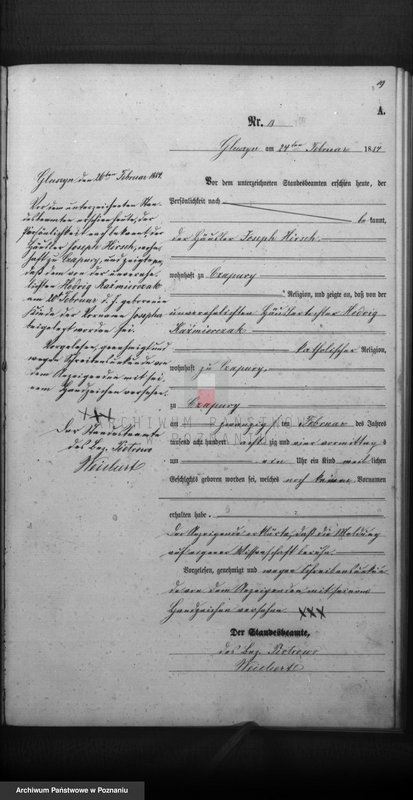 19
A.
Nr. 13
Gluszyn am 24ten Februar 1884
Vor dem unterzeichneten Standesbeamten erschien heute, der
Persönlichkeit nach
be kannt,
der Häusler Joseph Hirsch,
wohnhaft zu Czapury
Religion, und zeigte an, daß von der
unverehelichten Häuslertochter Hedwig
Kaźmierczak
katholischer Religion,
wohnhaft zu Czapury,
zu Czapury
am zwanzig ten Februar des Jahres
tausend acht hundert acht zig und vier vormittag s
um ein Uhr ein Kind weib lichen
Geschlechts geboren worden sei, welches noch keinen Vornamen
erhalten habe.
Der Anzeigende erklärte, daß die Meldung
auf eigener Wissenschaft beruhe.
Vorgelesen, genehmigt und wegen Schreibensunkunde
von dem Anzeigenden mit seinem
Handzeichen versehen XXX
Der Standesbeamte,
des Bez. Piotrowo
Weichert
Gluszyn den 26ten Februar 1884.
Vor dem unterzeichneten Stan-
desbeamten erschien heute, der
Persönlichkeit nach bekannt, der
Häusler Joseph Hirsch, wohn-
haft zu Czapury, und zeigte an,
daß dem von der unverehe-
lichten Hedwig Kaźmierczak
am 20 Februar d. J. geborenen
Kinde der Vorname Josepha
beigelegt worden sei.
Vorgelesen, genehmigt und
wegen Schreibensunkunde von
dem Anzeigenden mit sei-
nem Handzeichen versehen.
XXX
Der Standesbeamte
des Bez. Piotrowo
Weichert
ARCHIWUM PAŃSTWOWE
W POZNANIU
Archiwum Państwowe w Poznaniu